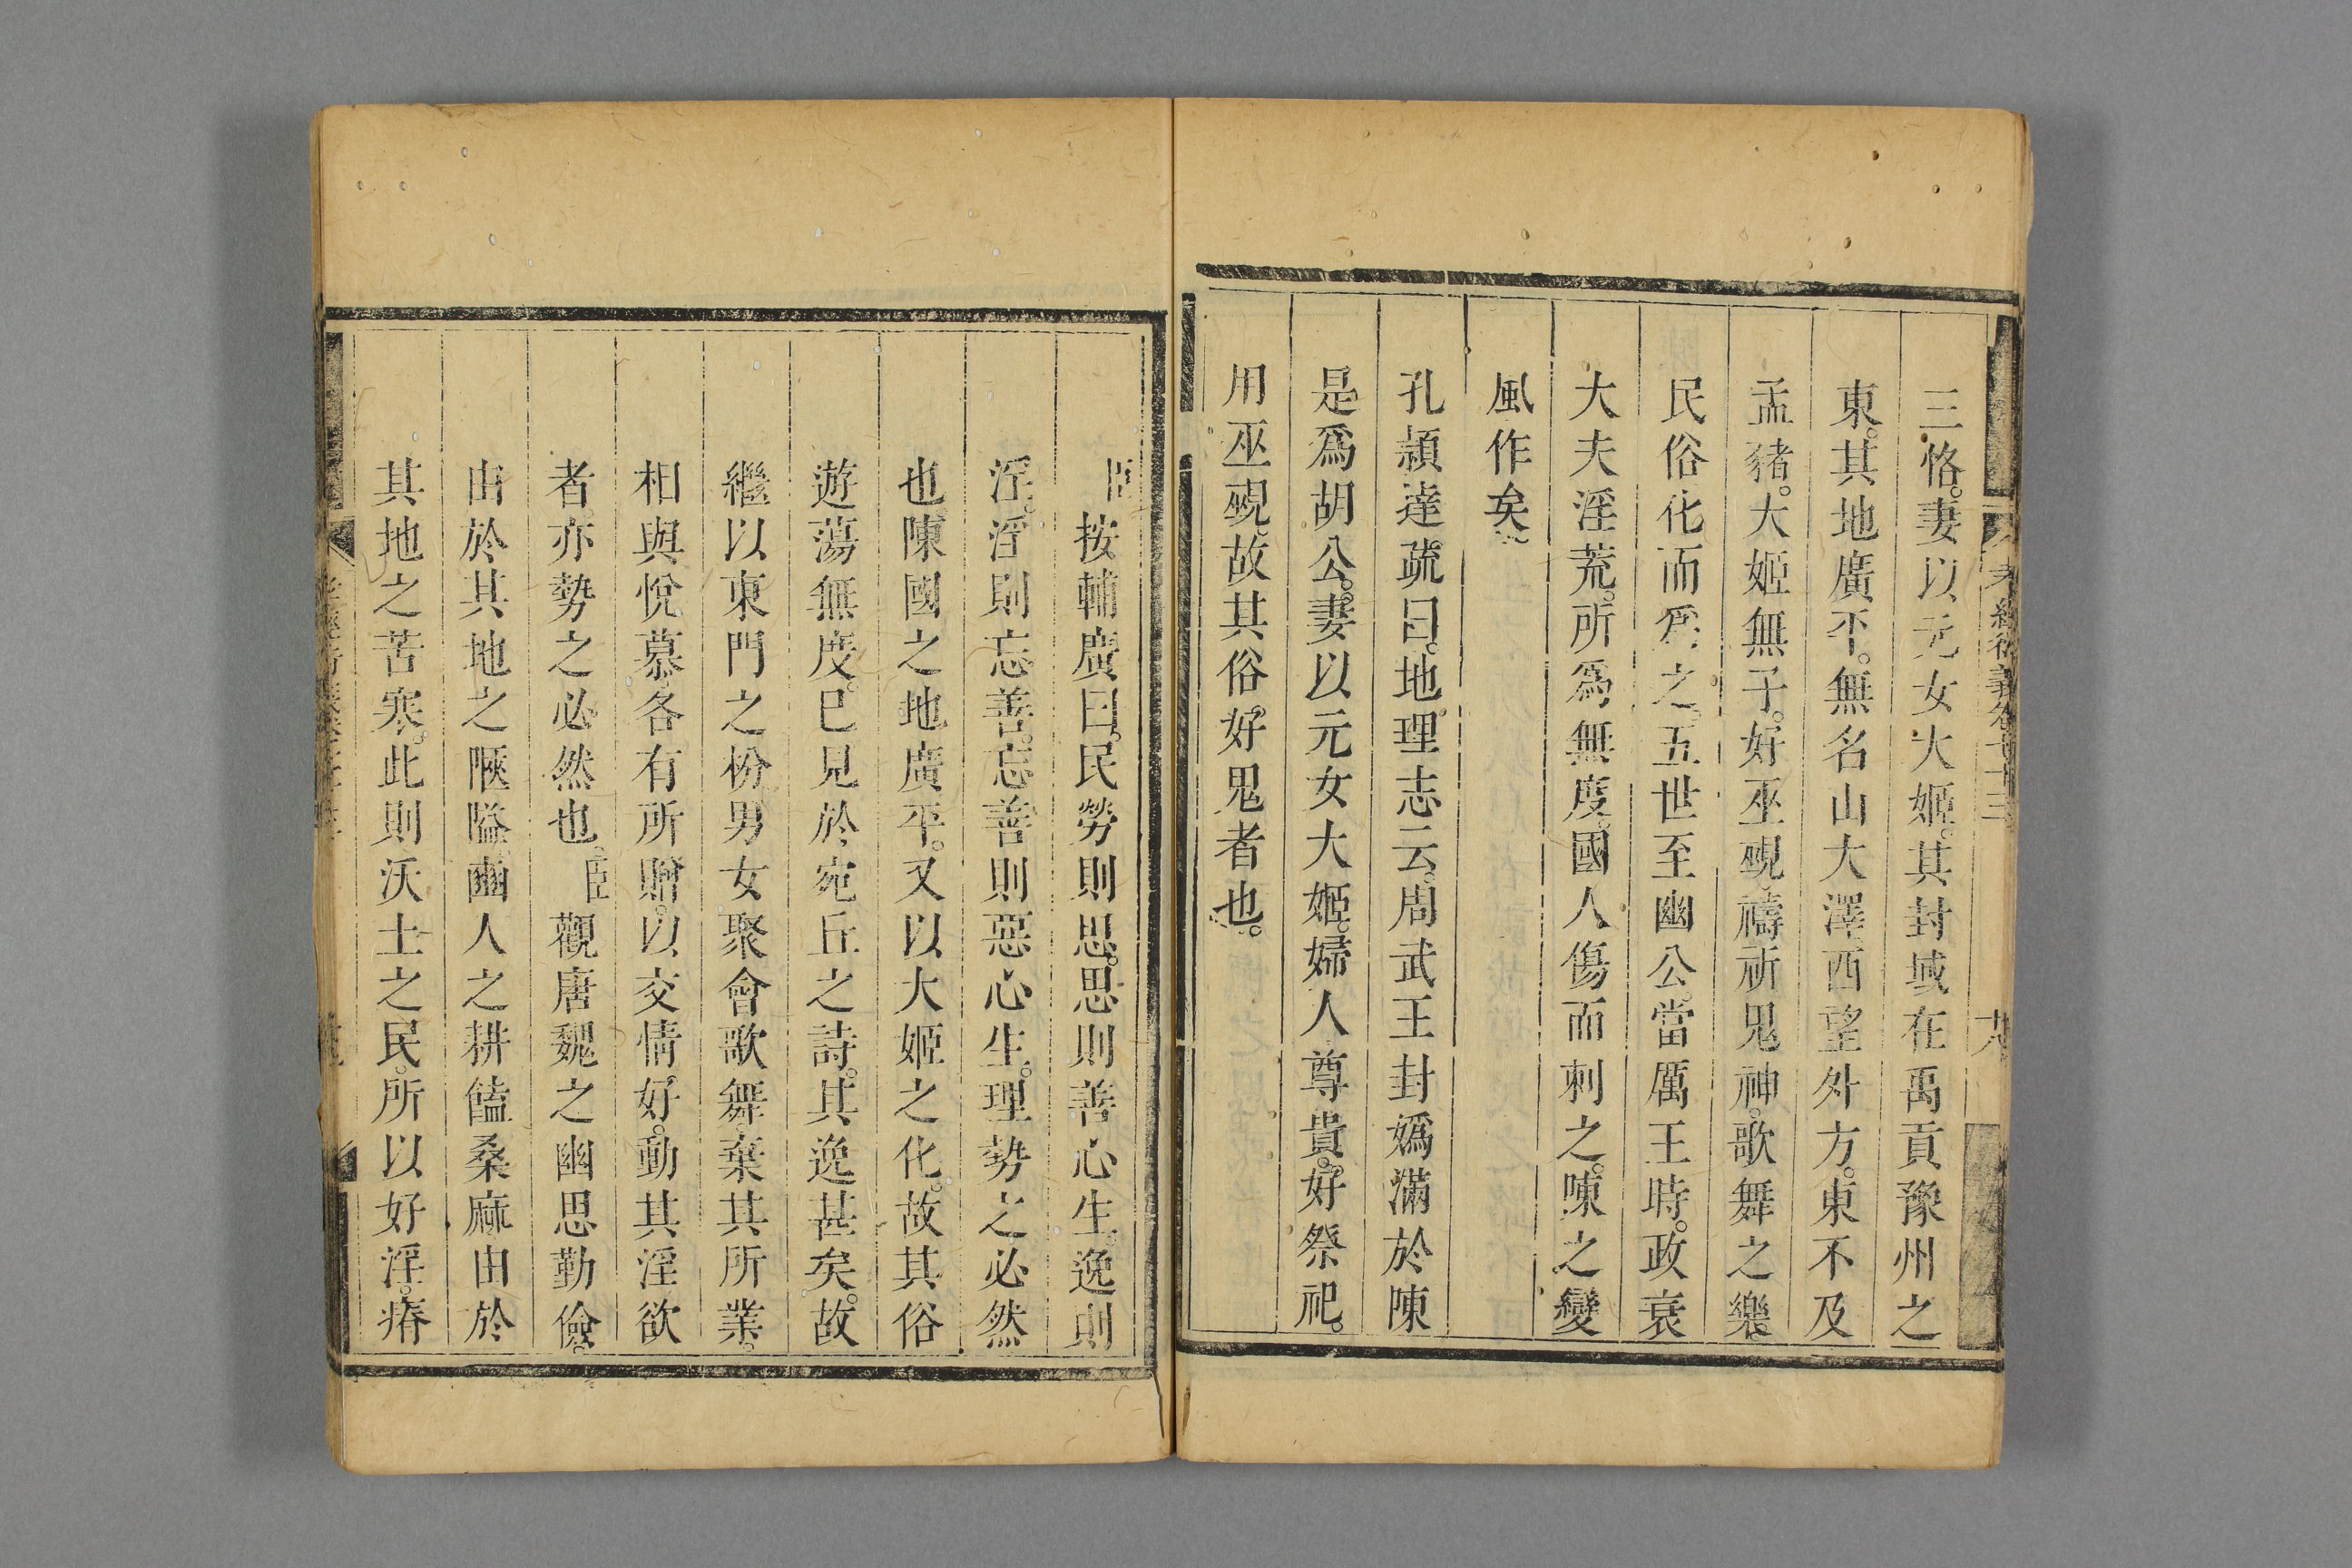 三恪。妻以元女大姬。其封域在禹貢豫州之
東。其地廣平。無名山大澤。西望外方。東不及
孟豬。大姬無子。好巫覡。禱祈鬼神。歌舞之樂。
民俗化而爲之。五世至幽公。當厲王時。政衰
大夫淫荒。所爲無度。國人傷而刺之。陳之變
風作矣。
孔穎達疏曰。地理志云。周武王封媯滿於陳
是爲胡公。妻以元女大姬。婦人尊貴。好祭祀。
用巫覡。故其俗好鬼者也。
臣按輔廣曰。民勞則思。思則善心生。逸則
淫。淫則忘善。忘善則惡心生。理勢之必然
也。陳國之地廣平。又以大姬之化。故其俗
遊蕩無度。已見於宛丘之詩。其逸甚矣。故
繼以東門之枌男女聚會歌舞。棄其所業。
相與悅慕。各有所贈。以交情好。動其淫欲
者。亦勢之必然也。臣觀唐魏之幽思勤儉。
由於其地之陿隘。豳人之耕饁桑麻由於
其地之苦寒。此則沃土之民。所以好淫。瘠